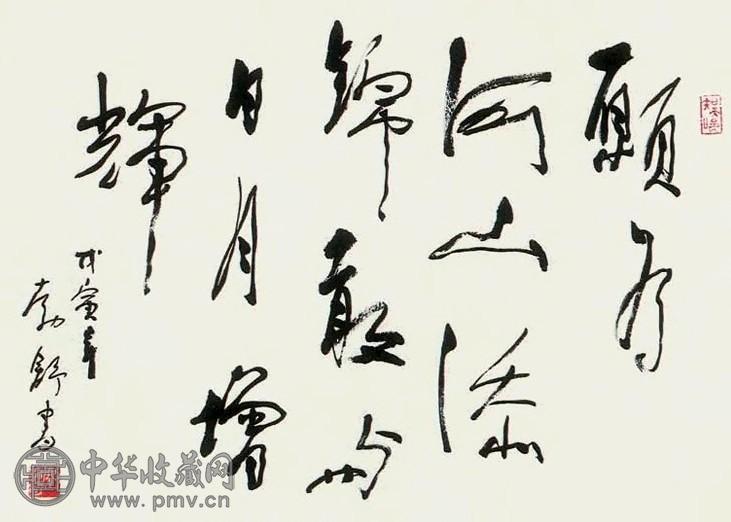 願为
河山添
錦敢与
日月增
輝
戊寅年
勃舒書
中华收藏网
www.pmv.cn